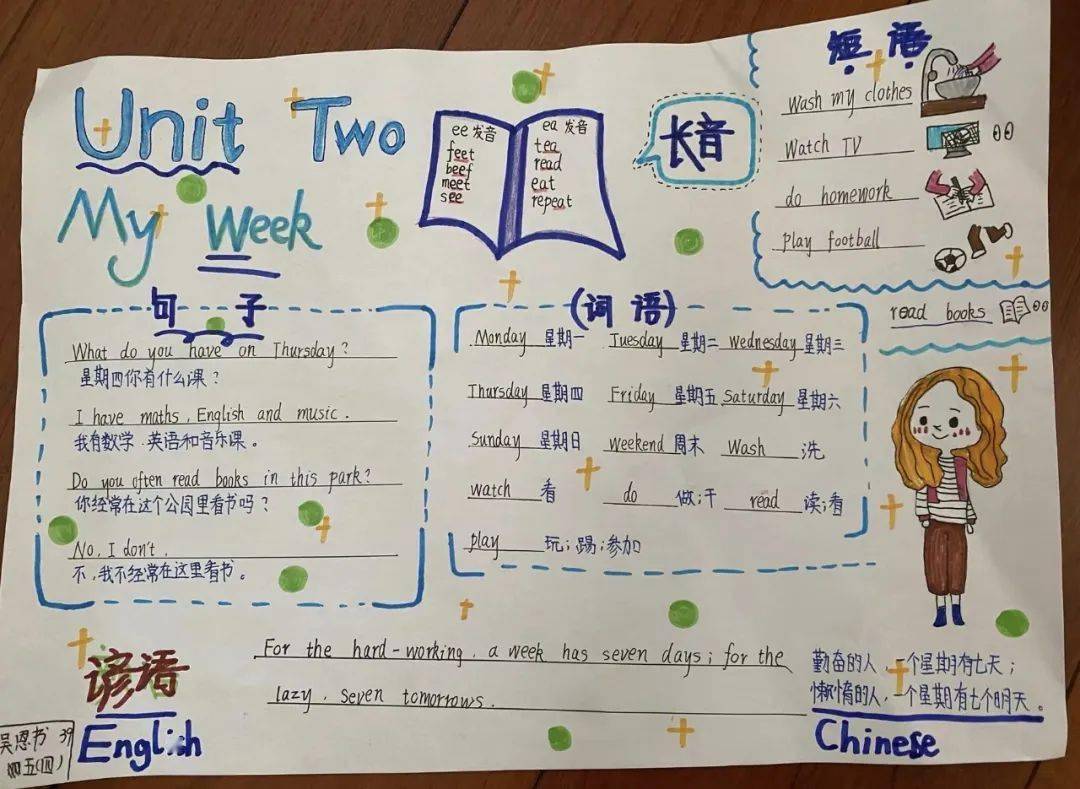 Unit Two
My Week
ee 发音
feet
beef
meet
see
ea 发音
tea
read
eat
repeat
长音
短语
Wash my clothes
Watch TV
do homework
play football
read books
句子
What do you have on Thursday?
星期四你有什么课?
I have maths, English and music.
我有数学、英语和音乐课。
Do you often read books in this park?
你经常在这个公园里看书吗?
No, I don't.
不,我不经常在这里看书。
(词语)
Monday 星期一 Tuesday 星期二 Wednesday 星期三
Thursday 星期四 Friday 星期五 Saturday 星期六
Sunday 星期日 weekend 周末 Wash 洗
watch 看 do 做;干 read 读;看
play 玩;踢;参加
谚语
English
For the hard-working, a week has seven days; for the
lazy, seven tomorrows.
勤奋的人,一个星期有七天;
懒惰的人,一个星期有七个明天。
Chinese
吴恩书 39
五(四)